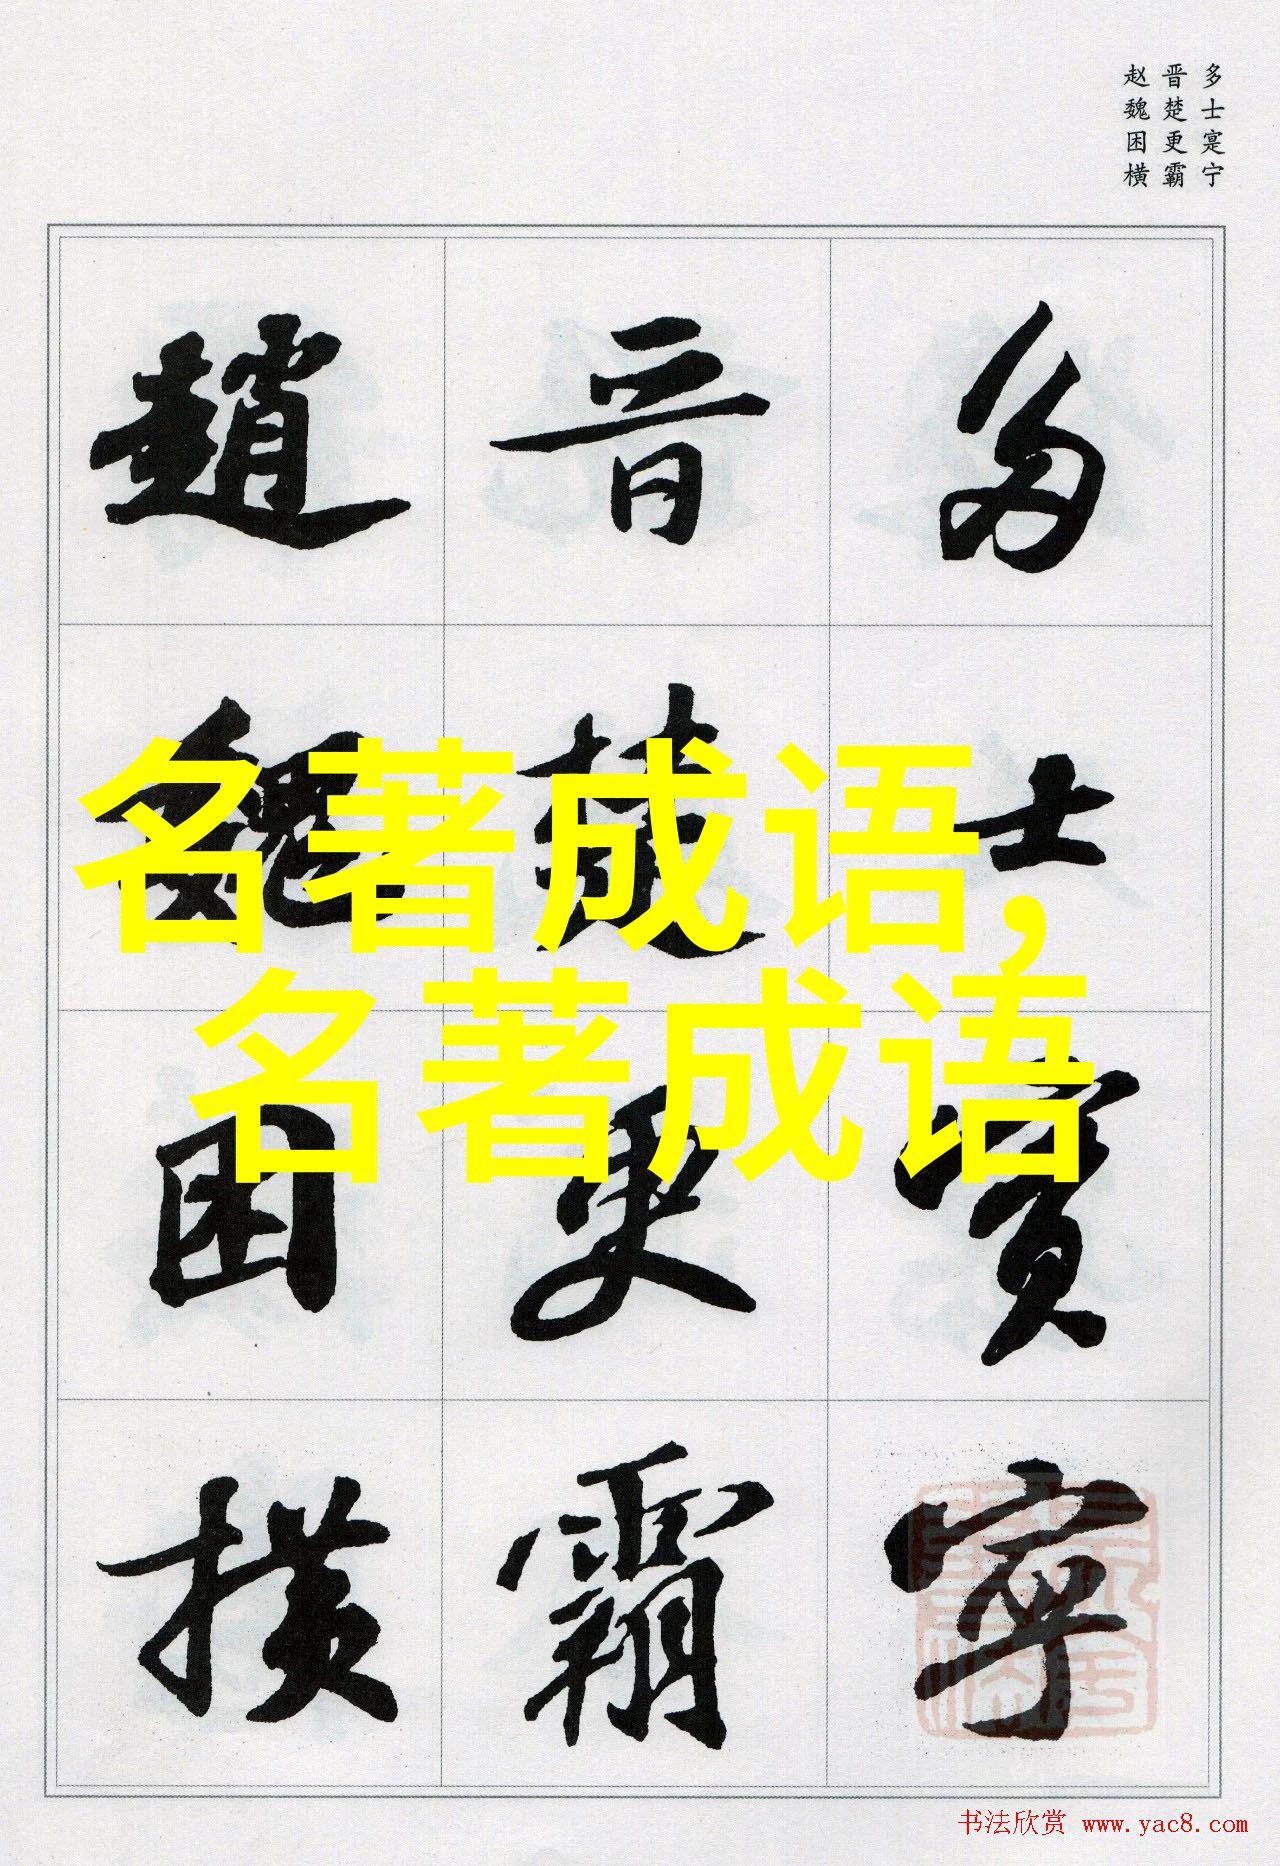 多士寔宁
晋楚更霸
赵魏困横
多士寔寧
晋楚更霸
趙魏困横
名著成语,
名著成语
书法欣赏 www.yac8.com